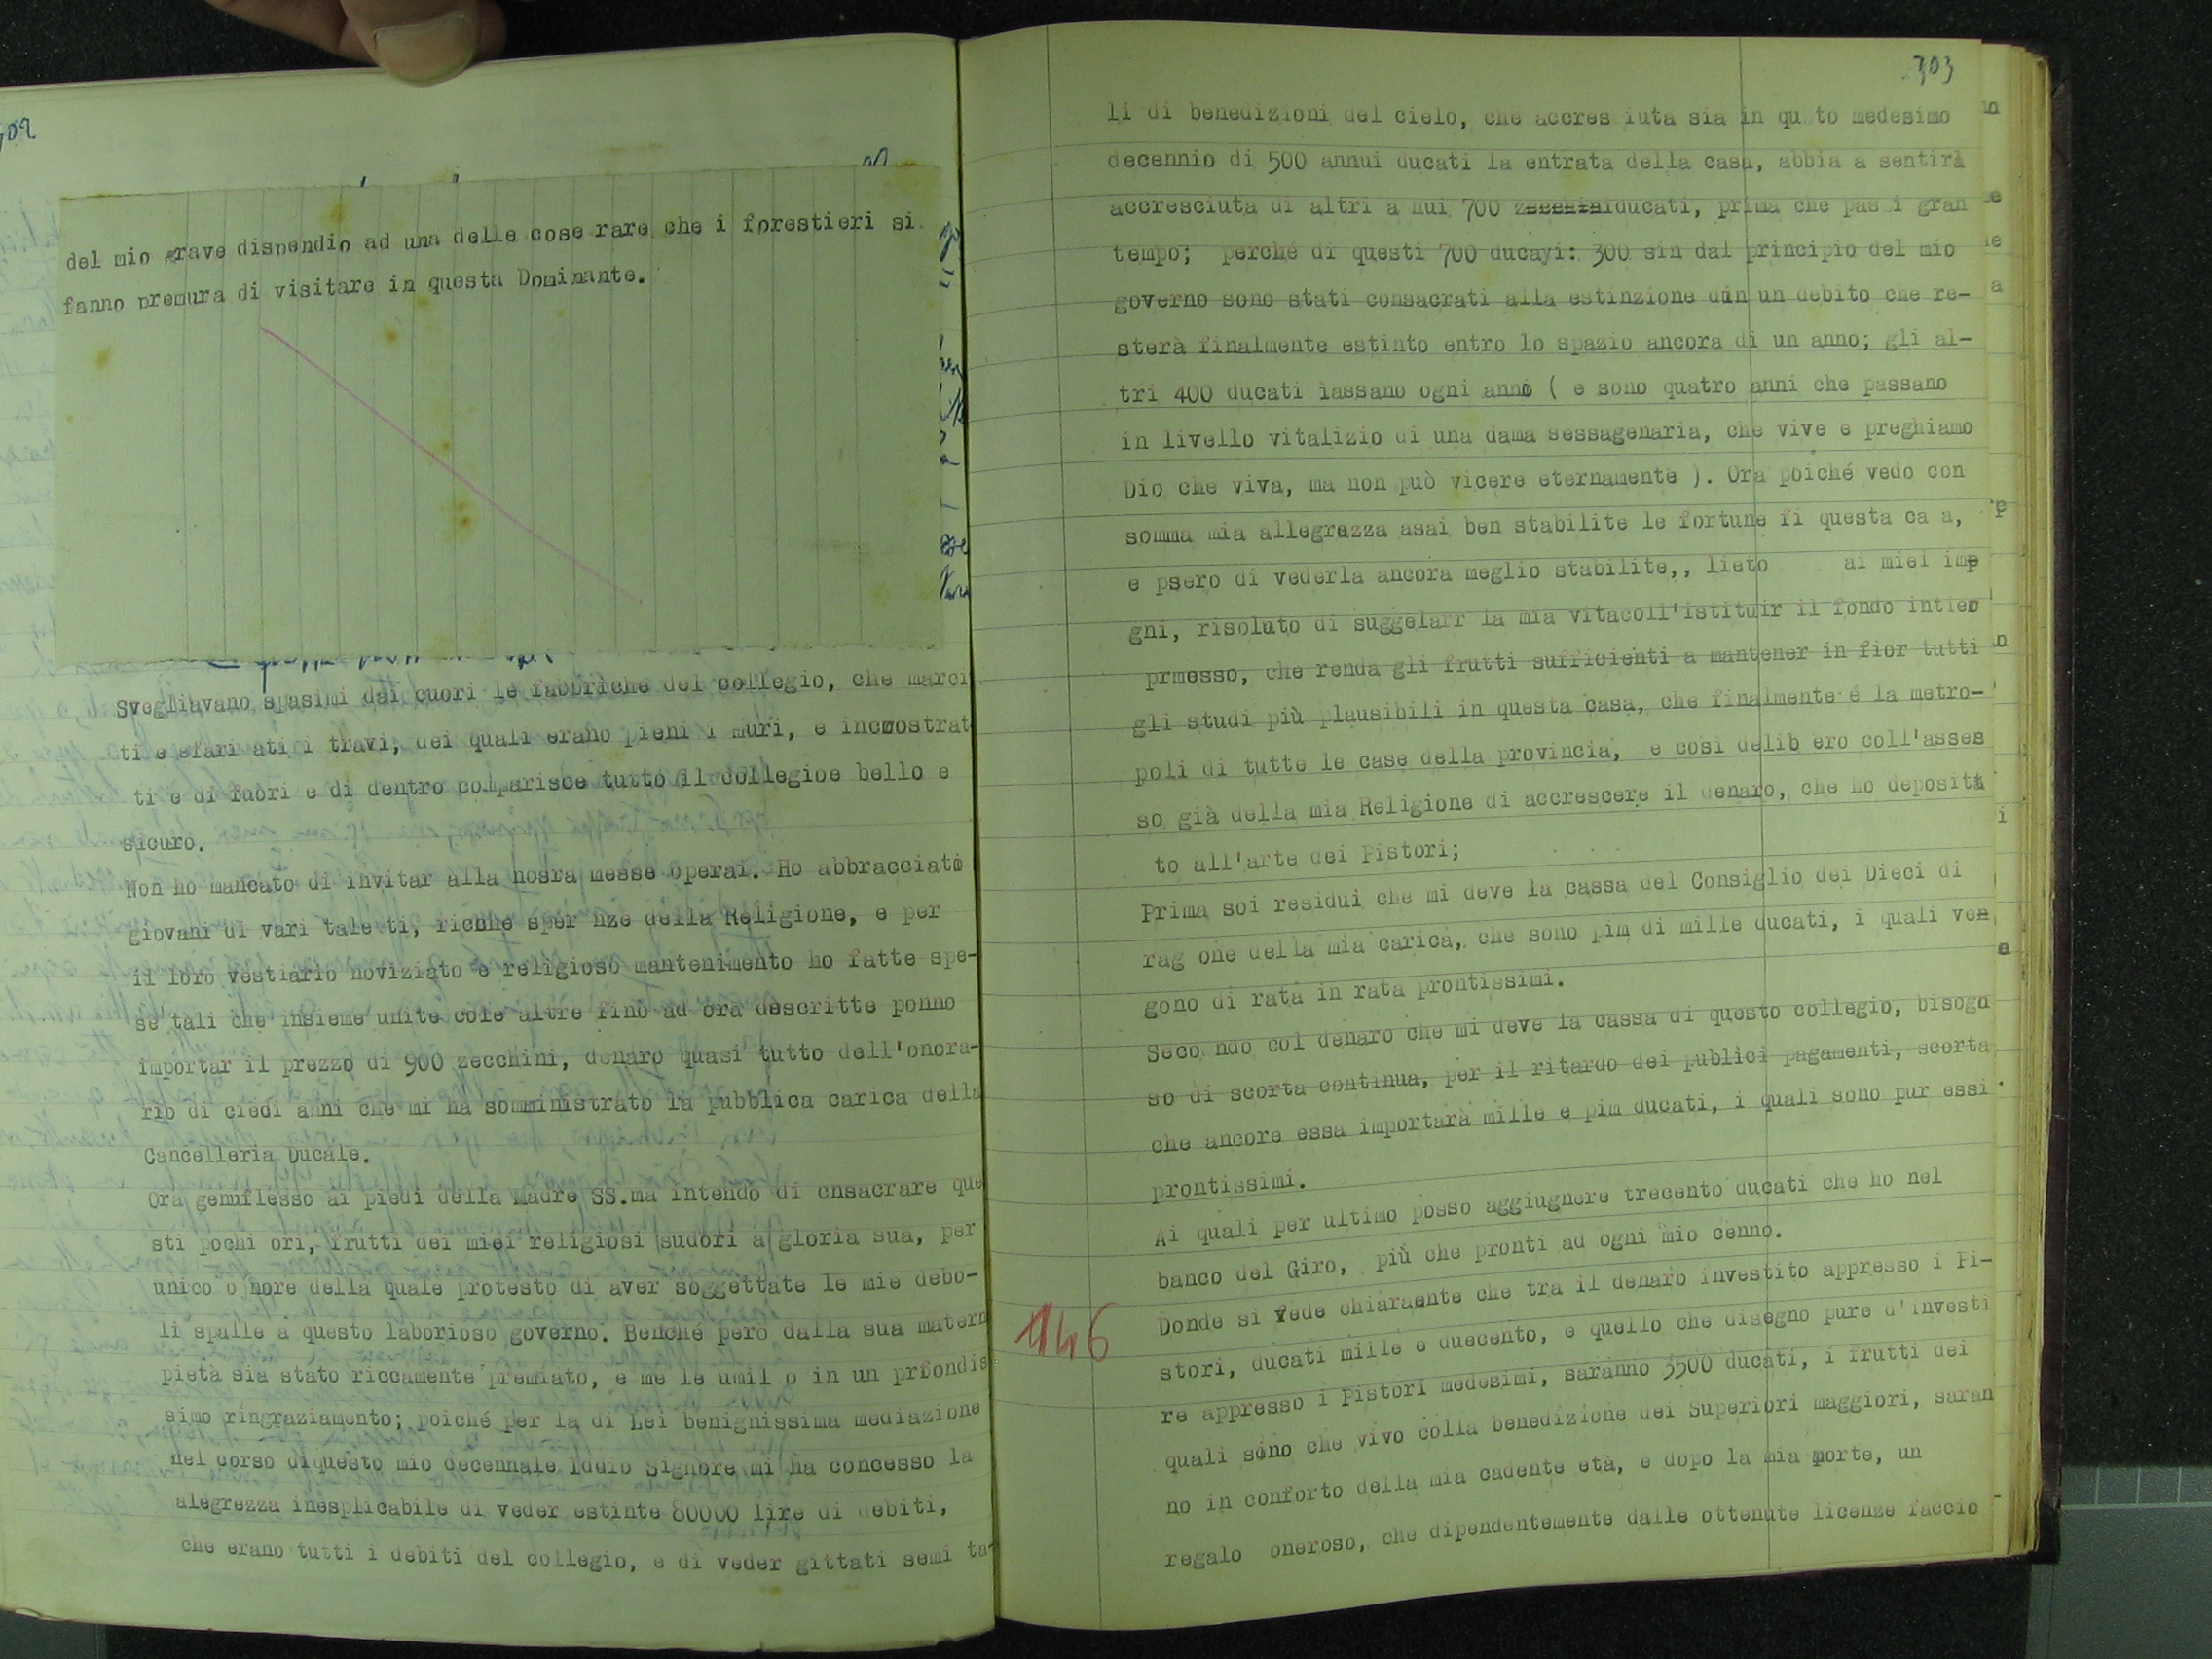 302
del mio grave dispendio ad una delle cose rare che i forestieri si
fanno premura di visitare in questa Dominante.
Svegliavano spasimi dai cuori le fabbriche del collegio, che marci
ti e sfari ati i travi, dei quali erano pieni i muri, e incrostrat
ti e di fuori e di dentro comparisce tutto il collegioe bello e
sicuro.
Non ho mancato di invitar alla nosra messe operai. Ho abbracciato
giovani di vari tale ti, ricche sper nze della Religione, e per
il loro vestiario noviziato e religioso mantenimento ho fatte spe-
se tali che insieme unite cole altre fino ad ora descritte ponno
importar il prezzo di 900 zecchini, denaro quasi tutto dell'onora-
rio di cieci anni che mi ha somministrato la pubblica carica della
Cancelleria Ducale.
Ora genuflesso ai piedi della Madre SS.ma intendo di cnsacrare que
sti pochi ori, frutti dei miei religiosi sudori a gloria sua, per
unico o nore della quale protesto di aver soggettate le mie debo-
li spalle a questo laborioso governo. Benché però dalla sua matern
pietà sia stato riccamente premiato, e me le umil o in un prfondis
simo ringraziamento; poiché per la di Lei benignissima mediazione
nel corso diquesto mio decennale Iddio Signore mi ha concesso la
alegrezza inesplicabile di veder estinte 80000 lire di debiti,
che erano tutti i debiti del collegio, e di veder gittati semi ta-
303
li di benedizioni del cielo, che accres iuta sia in qu to medesimo
decennio di 500 annui ducati la entrata della casa, abbia a sentirà
accresciuta di altri a nui 700 zecchiniducati, prima che pas i gran
tempo; perché di questi 700 ducayi: 300 sin dal principio del mio
governo sono stati consacrati alla estinzione din un debito che re-
sterà finalmente estinto entro lo spazio ancora di un anno; gli al-
tri 400 ducati iassano ogni anno ( e sono quatro anni che passano
in livello vitalizio di una dama sessagenaria, che vive e preghiamo
Dio che viva, ma non può vicere eternamente ). Ora poiché vedo con
somma mia allegrezza asai ben stabilite le fortune fi questa ca a,
e psero di vederla ancora meglio stabilite,, lieto ai miei imp
gni, risoluto di suggelarr la mia vitacoll'istituir il fondo intier
prmesso, che renda gli frutti sufficienti a mantener in fior tutti
gli studi più plausibili in questa casa, che finalmente é la metro-
poli di tutte le case della provincia, e così delib ero coll'asses
so già della mia Religione di accrescere il denaro, che ho deposita
to all'arte dei Pistori;
Prima soi residui che mi deve la cassa del Consiglio dei Dieci di
rag one della mia carica, che sono pim di mille ducati, i quali ven
gono di rata in rata prontissimi.
Seco ndo col denaro che mi deve la cassa di questo collegio, bisogn
so di scorta continua, per il ritardo dei publici pagamenti, scorta
che ancore essa importarà mille e pim ducati, i quali sono pur essi
prontissimi.
Ai quali per ultimo posso aggiugnere trecento ducati che ho nel
banco del Giro, più che pronti ad ogni mio cenno.
146
Donde si vede chiaraente che tra il denaro investito appresso i Pi-
stori, ducati mille e duecento, e quello che disegno pure d'investi
re appresso i Pistori medesimi, saranno 3500 ducati, i frutti dei
quali sino che vivo colla benedizione dei Superiori maggiori, saran
no in conforto della mia cadente età, e dopo la mia morte, un
regalo oneroso, che dipendentemente dalle ottenute licenze faccio